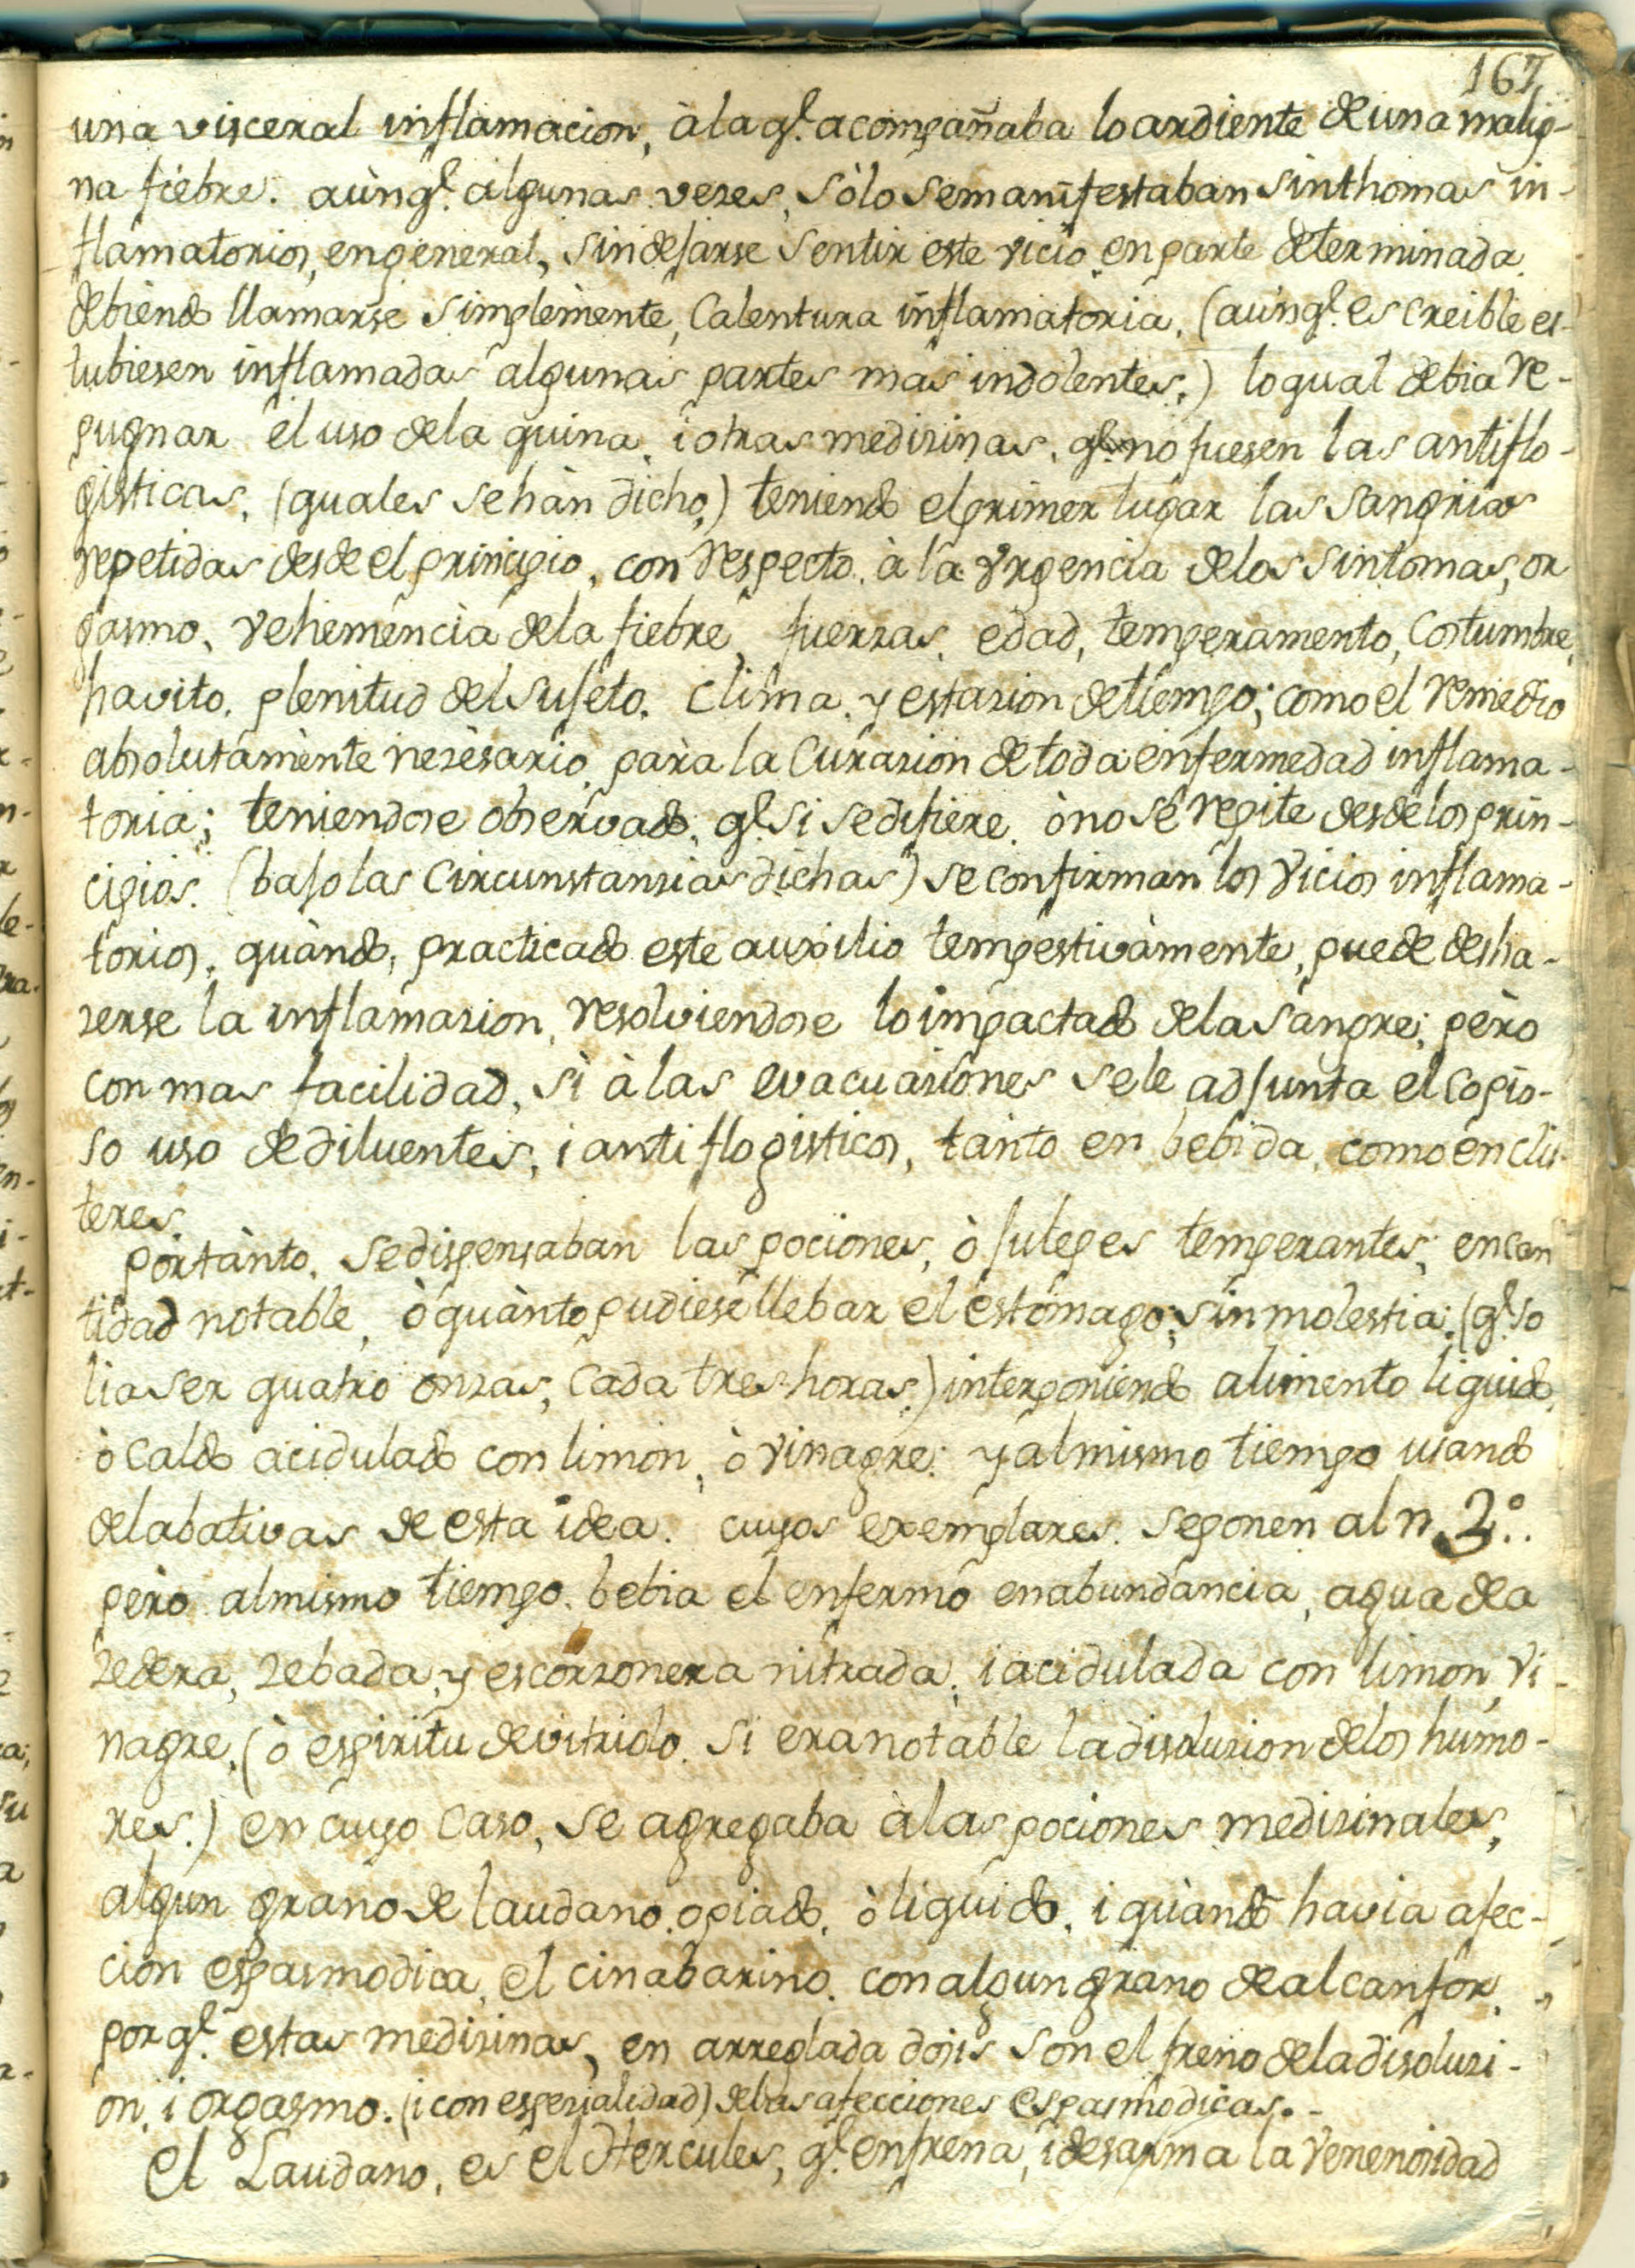 167
una visceral inflamacion, à la q.e acompañaba lo ardiente de una malig-
na fiebre. aùnq.e algunas vezes, sòlo se manifestaban sinthomas in-
flamatorios, en general, sin dejarse sentir este vicio en parte determinada.
debiendo llamarse simplemente, Calentura inflamatoria, (aùnq.e es creible es-
tubiesen inflamadas algunas partes mas indolentes.) lo qual debia re-
pugnar el uso de la quina, i otras medizinas, q.e no fuesen las antiflo-
gisticas, (quales se hàn dicho,) teniendo el primer lugar las sangrias
repetidas desde el principio, con respecto, à la vrgencia de los sintomas, or
gasmo, vehemencia de la fiebre, fuerzas, edad, temperamento, Costumbre,
havito, plenitud del sujeto, Clima, y estazion de tiempo; como el remedio
absolutamènte nezèsario, para la Curazion de toda enfermedad inflama-
toria; teniendose observado, q.e si se difiere, ò no se repite desde los prin-
cipios, (bajo las Circunstanzias dichas) se confirman los vicios inflama-
torios, quàndo, practicado este auxilio tempestivàmente, puede desha-
zerse la inflamazion, resolviendose lo impactado de la sangre; pèro
con mas facilidad, sì à las evacuaziones se le adjunta el copio-
so uso de diluentes, i antiflogisticos, tanto en bebida, como en clis-
teres.
pòrtànto, se dispensaban las pociones, ò juleps es temperantes; en can
tidad notable, ò quànto pudiese llebar el estomago; sin molestia; (q.e so
lia ser quatro onzas, Cada tres horas,) interponiendo alimento liquido,
ò Caldo acidulado con limon, ò vinagre: y al mismo tiempo usando
de labativas de esta idea. cuyos exemplares. se ponen al n. 2.º.
pèro al mismo tiempo. bebia el enfermo en abundancia, agua de a
zedera, zebada, y escorzonera nitrada, i acidulada con limon, vi-
nagre, (ò espiritu de vitriolo. si era notable la disoluzion de los humo-
res.) en cuyo Caso, se agregaba à las pociones medizinales,
algun grano de laudano opiado, ò liquido, i quàndo havia afec-
cion espasmodica, el cinabarino, con algun grano de alcanfor,
porq.e estas medizinas, en arreglada dosis son el freno de la disoluzi-
on, i orgasmo. (i con espezialidad) de las afecciones espasmodicas.-
el Laudano, es el Hercules, q.e enfrena, i desarma la venenosidad